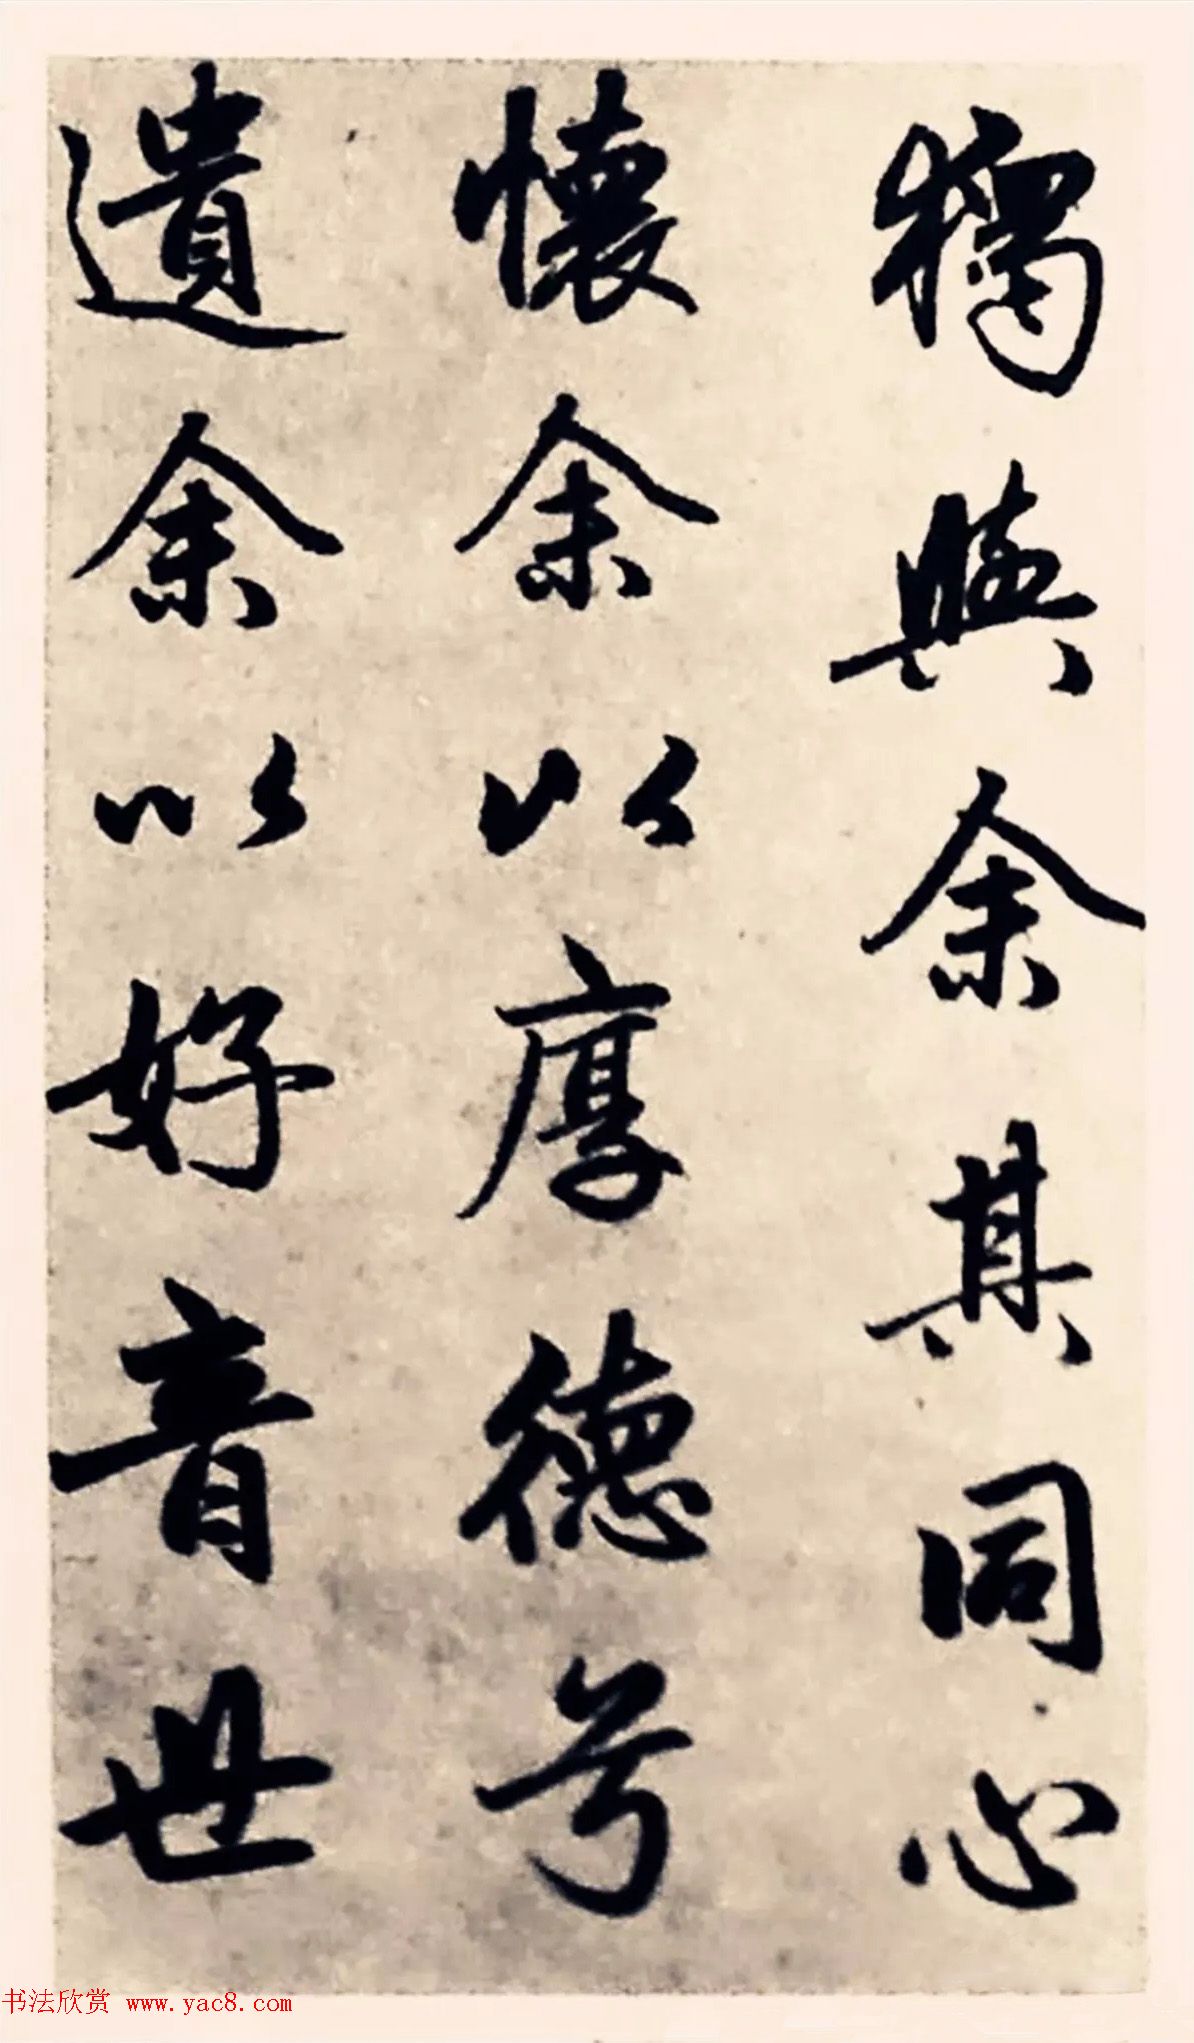 獨與余其同心
懷余以厚德兮
遺余以好音世
书法欣赏 www.yac8.com